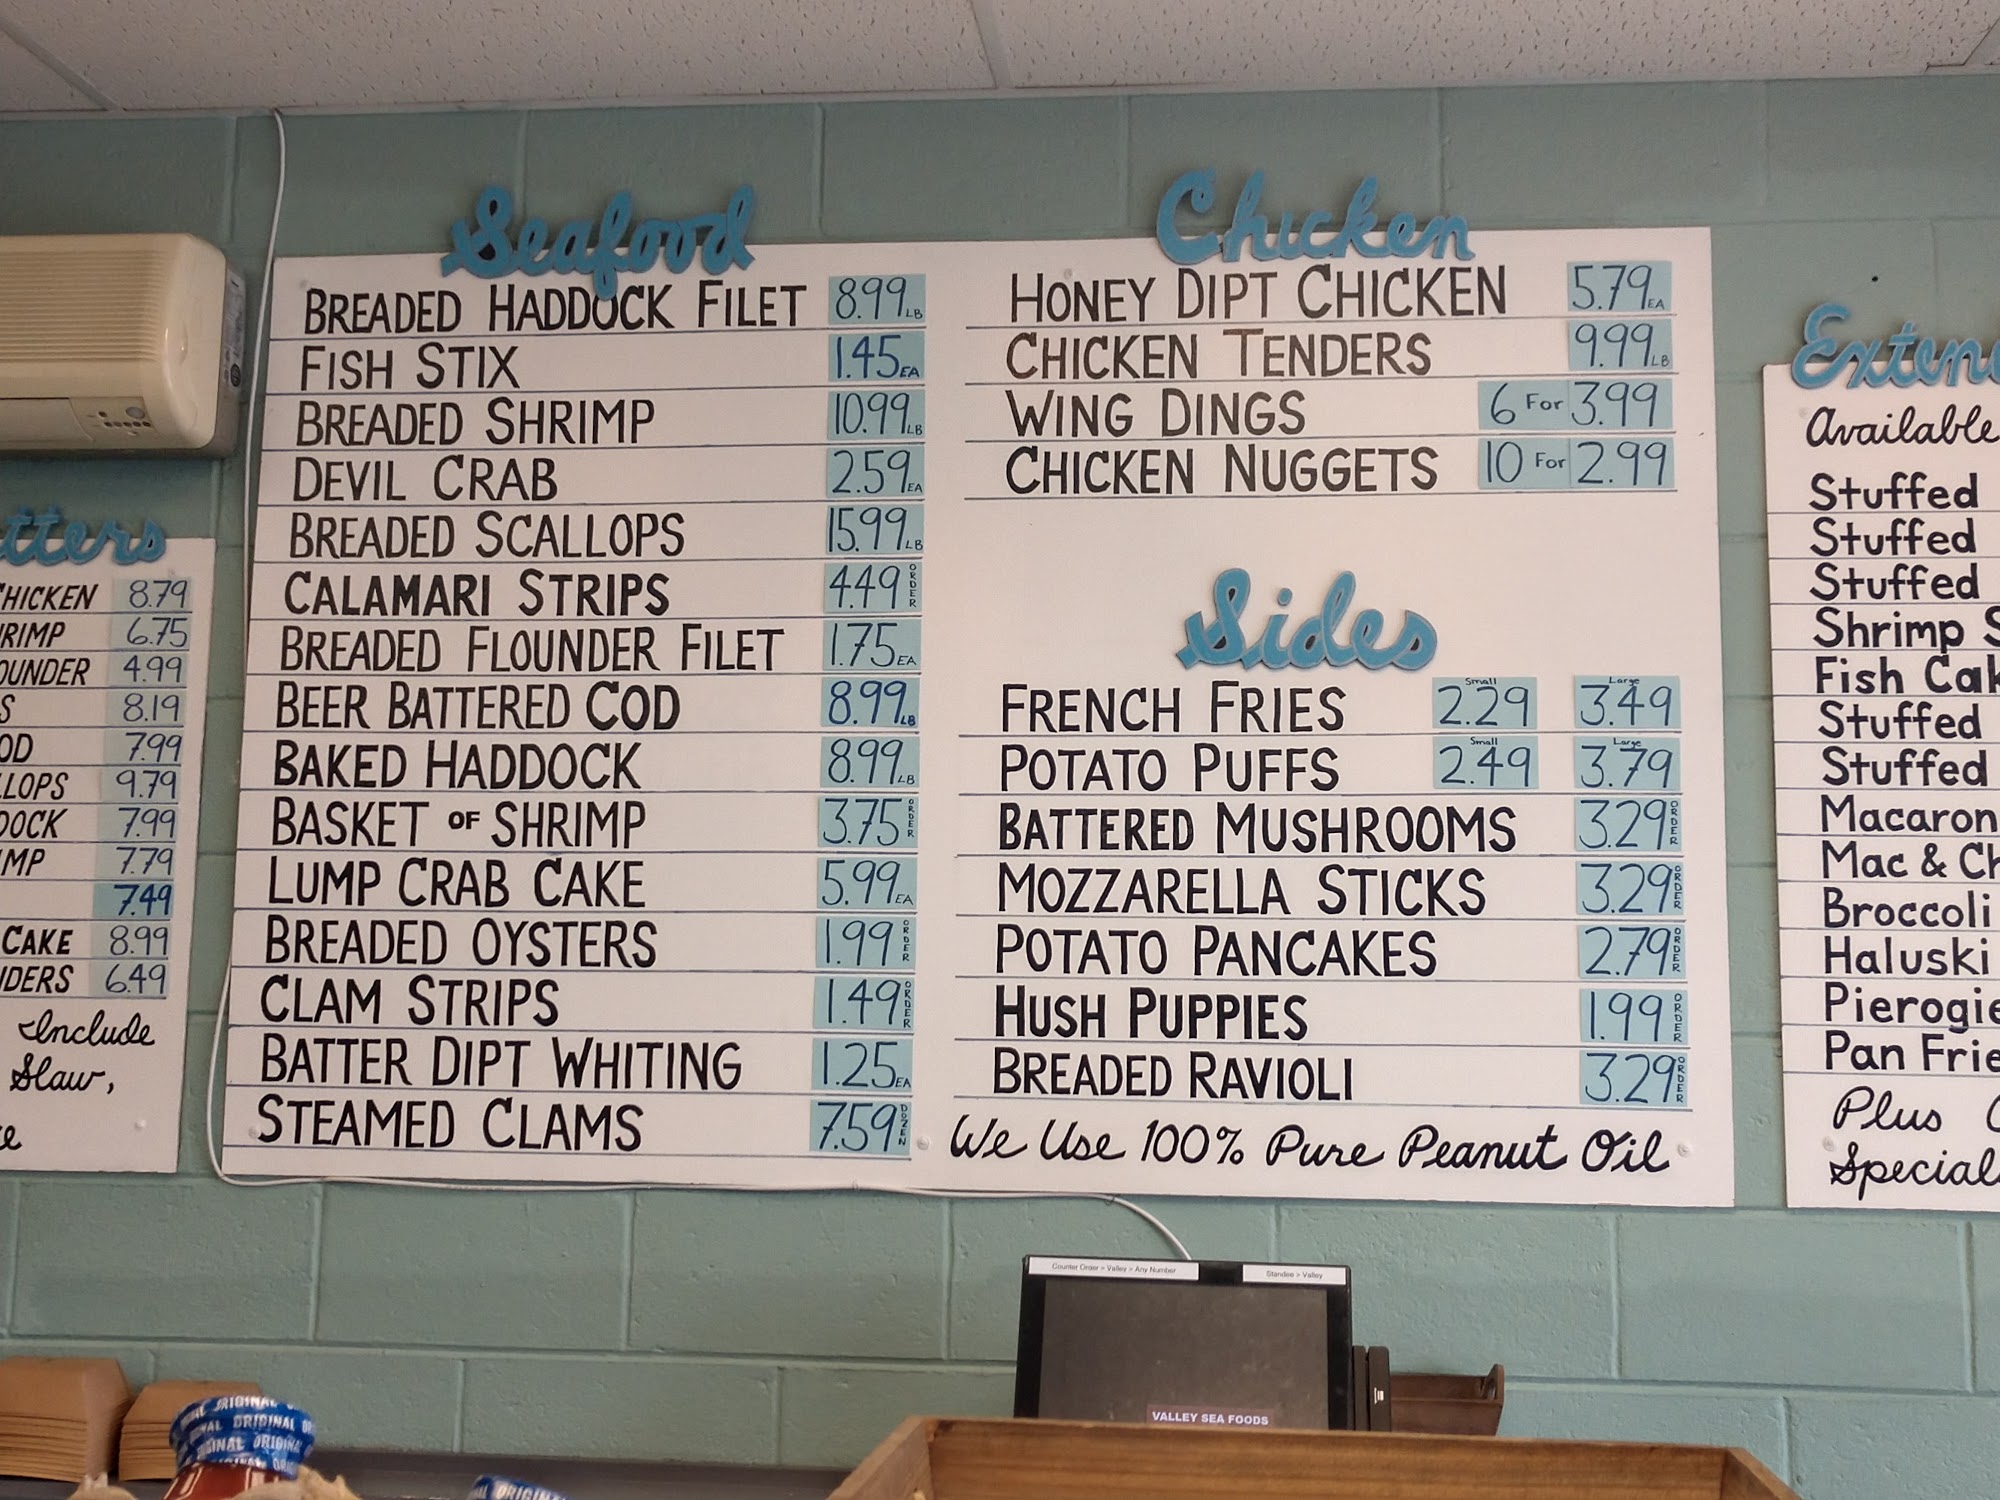 tters
HICKEN 8.79
RIMP 6.75
OUNDER 4.99
S 8.19
OD 7.99
LLOPS 9.79
DOCK 7.99
IMP 7.79
7.49
CAKE 8.99
NDERS 6.49
Include
Slaw,
Seafood
BREADED HADDOCK FILET 8.99 LB
FISH STIX 1.45 EA
BREADED SHRIMP 10.99 LB
DEVIL CRAB 2.59 EA
BREADED SCALLOPS 15.99 LB
CALAMARI STRIPS 4.49 ORDER
BREADED FLOUNDER FILET 1.75 EA
BEER BATTERED COD 8.99 LB
BAKED HADDOCK 8.99 LB
BASKET OF SHRIMP 3.75 ORDER
LUMP CRAB CAKE 5.99 EA
BREADED OYSTERS 1.99 ORDER
CLAM STRIPS 1.49 ORDER
BATTER DIPT WHITING 1.25 EA
STEAMED CLAMS 7.59 DOZEN
Chicken
HONEY DIPT CHICKEN 5.79 EA
CHICKEN TENDERS 9.99 LB
WING DINGS 6 For 3.99
CHICKEN NUGGETS 10 For 2.99
Sides
FRENCH FRIES Small 2.29 Large 3.49
POTATO PUFFS Small 2.49 Large 3.79
BATTERED MUSHROOMS 3.29 ORDER
MOZZARELLA STICKS 3.29 ORDER
POTATO PANCAKES 2.79 ORDER
HUSH PUPPIES 1.99 ORDER
BREADED RAVIOLI 3.29 ORDER
We Use 100% Pure Peanut Oil
Exten
Available
Stuffed
Stuffed
Stuffed
Shrimp S
Fish Cak
Stuffed
Stuffed
Macaron
Mac & Ch
Broccoli
Haluski
Pierogie
Pan Frie
Plus
Special
Counter Order > Valley > Any Number
Standee > Valley
VALLEY SEA FOODS
ORIGINAL
ORIGINAL
ORIGINAL
ORIGINAL